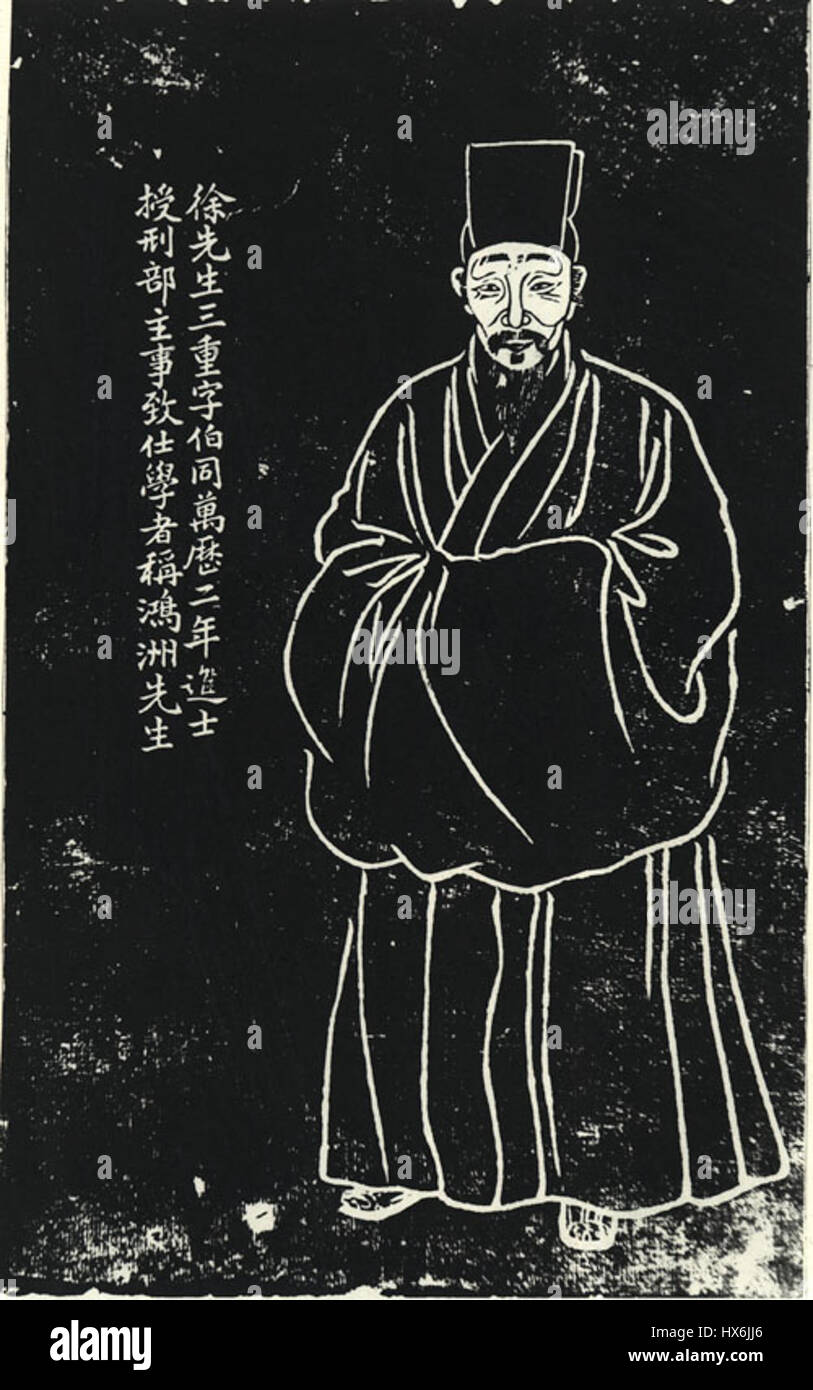 徐先生三重字伯同萬歷二年進士
授刑部主事致仕學者稱鴻洲先生
alamy stock photo
alamy
Image ID: HX6JJ6
www.alamy.com